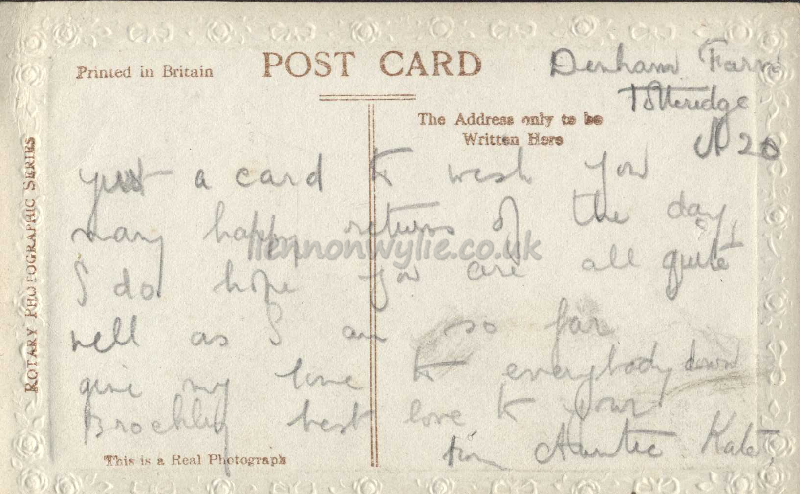 POST CARD
Printed in Britain
Denham Farm
Totteridge
N 20
The Address only to be
Written Here
ROTARY PHOTOGRAPHIC SERIES
just a card to wish you
many happy returns of the day,
I do hope you are all quite
well as I am so far
give my love to everybody down
best love to your
from Auntie Kate,
This is a Real Photograph
lennonwylie.co.uk